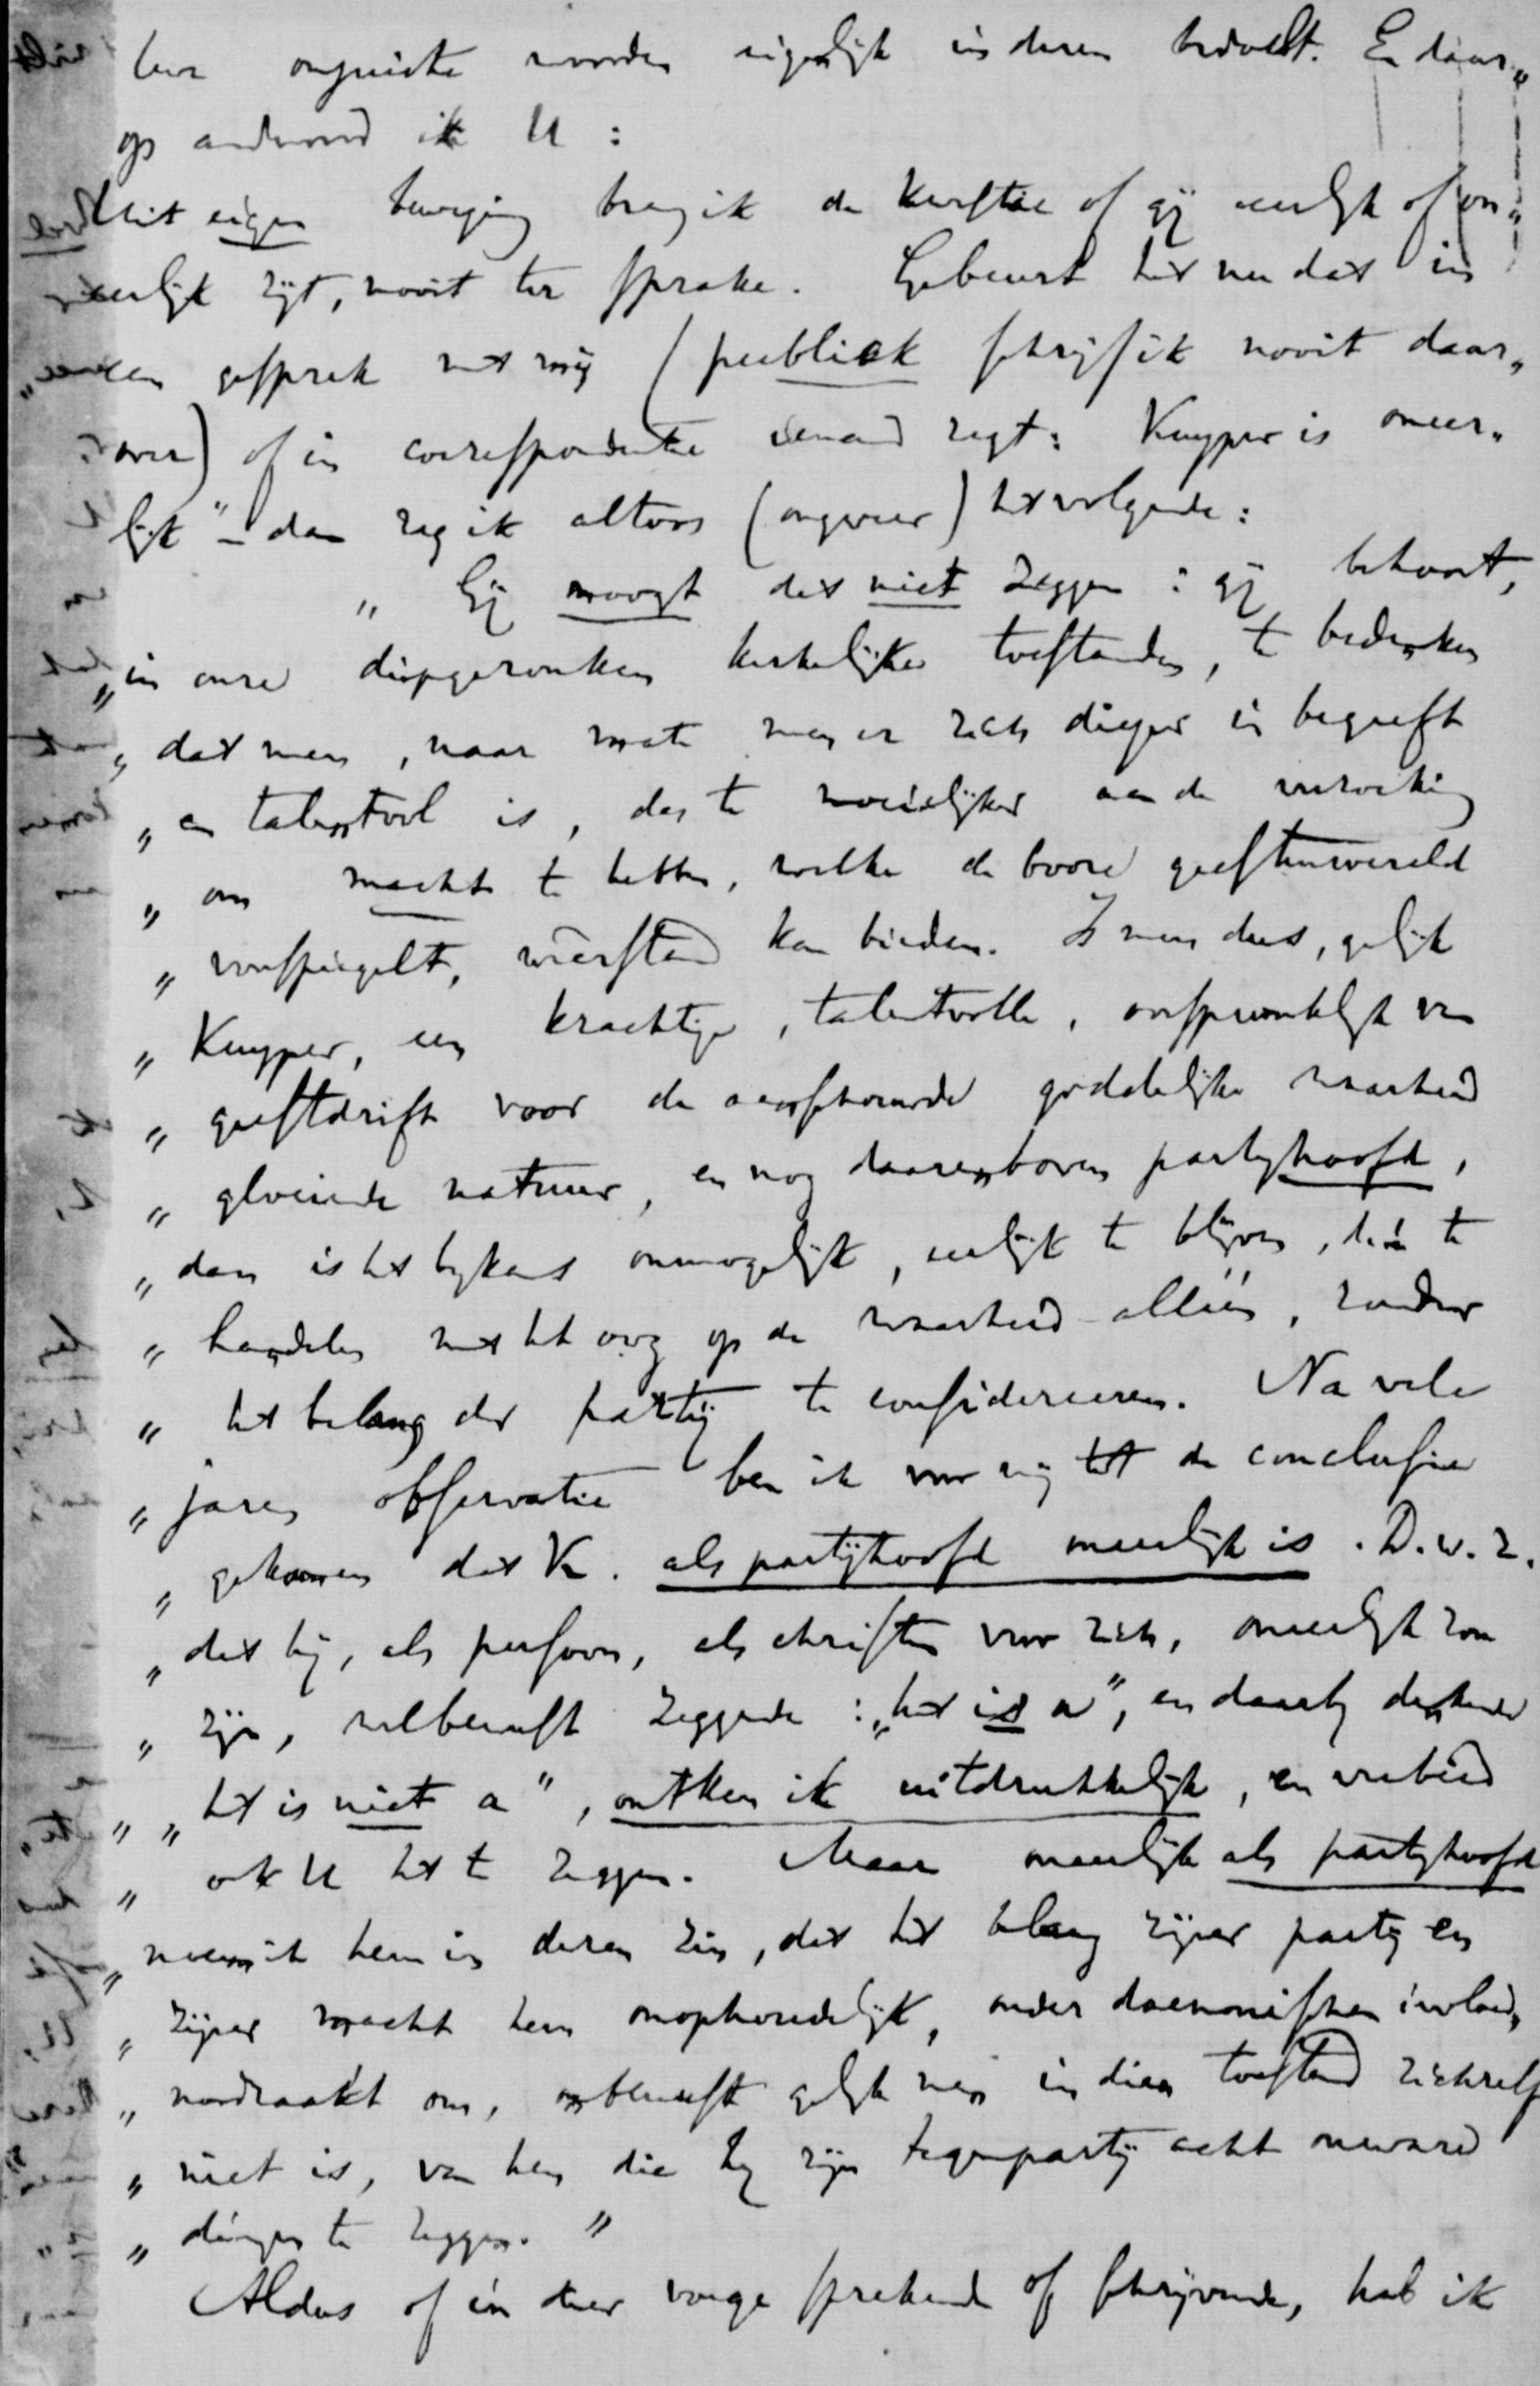 onjuiste woorden eigenlijk in dezen bedoelt. En daar„
op antwoord ik U :
Uit eigen beweging breng ik de kwestie of gij eerlijk of on„
eerlijk zijt, nooit ter sprake. Gebeurt het nu dat in
een gesprek met mij (publiek schrijf ik nooit daar„
over) of in correspondentie iemand zegt: Kuyper is oneer„
lijk" – dan zeg ik altoos (ongeveer) het volgende :
„ Gij moogt dat niet zeggen : gij behoort,
„ in onze diepgezonken kerkelijke toestanden, te bedenken
„ dat men, naar mate men er zich dieper in begeeft
„ en talentvol is, des te moeielijker aan de verzoeking
„ om macht te hebben, welke de booze geestenwereld
„ voorspiegelt, weerstand kan bieden. Is men dus, gelijk
„ Kuyper, een krachtige, talentvolle, oorspronkelijk van
„ geestdrift voor de aanschouwde goddelijke waarheid
„ gloeiende natuur, en nog daarenboven partijhoofd,
„ dan is het bijkans onmogelijk, eerlijk te blijven, d.i. te
„ handelen met het oog op de waarheid alléén, zonder
„ het belang der partij te considereeren. Na vele
„ jaren observatie ben ik voor mij tot de conclusie
„ gekomen dat K. als partijhoofd oneerlijk is. D.w.z.
„ dat hij, als persoon, als christen voor zich, oneerlijk zou
„ zijn, zelbewust zeggende : „het is a", en daarbij denkende
„ „ het is niet a", ontken ik uitdrukkelijk, en verbied
„ ook U het te zeggen. Maar oneerlijk als partijhoofd
„ noem ik hem in dezen zin, dat het belang zijner partij en
„ zijner macht hem onophoudelijk, onder daemonischen invloed,
„ noodzaakt om, onbewust gelijk men in dien toestand zichzelf
„ niet is, van hen die hij zijn tegenpartij acht onware
„ dingen te zeggen. "
Aldus of in dier voege sprekende of schrijvende, heb ik